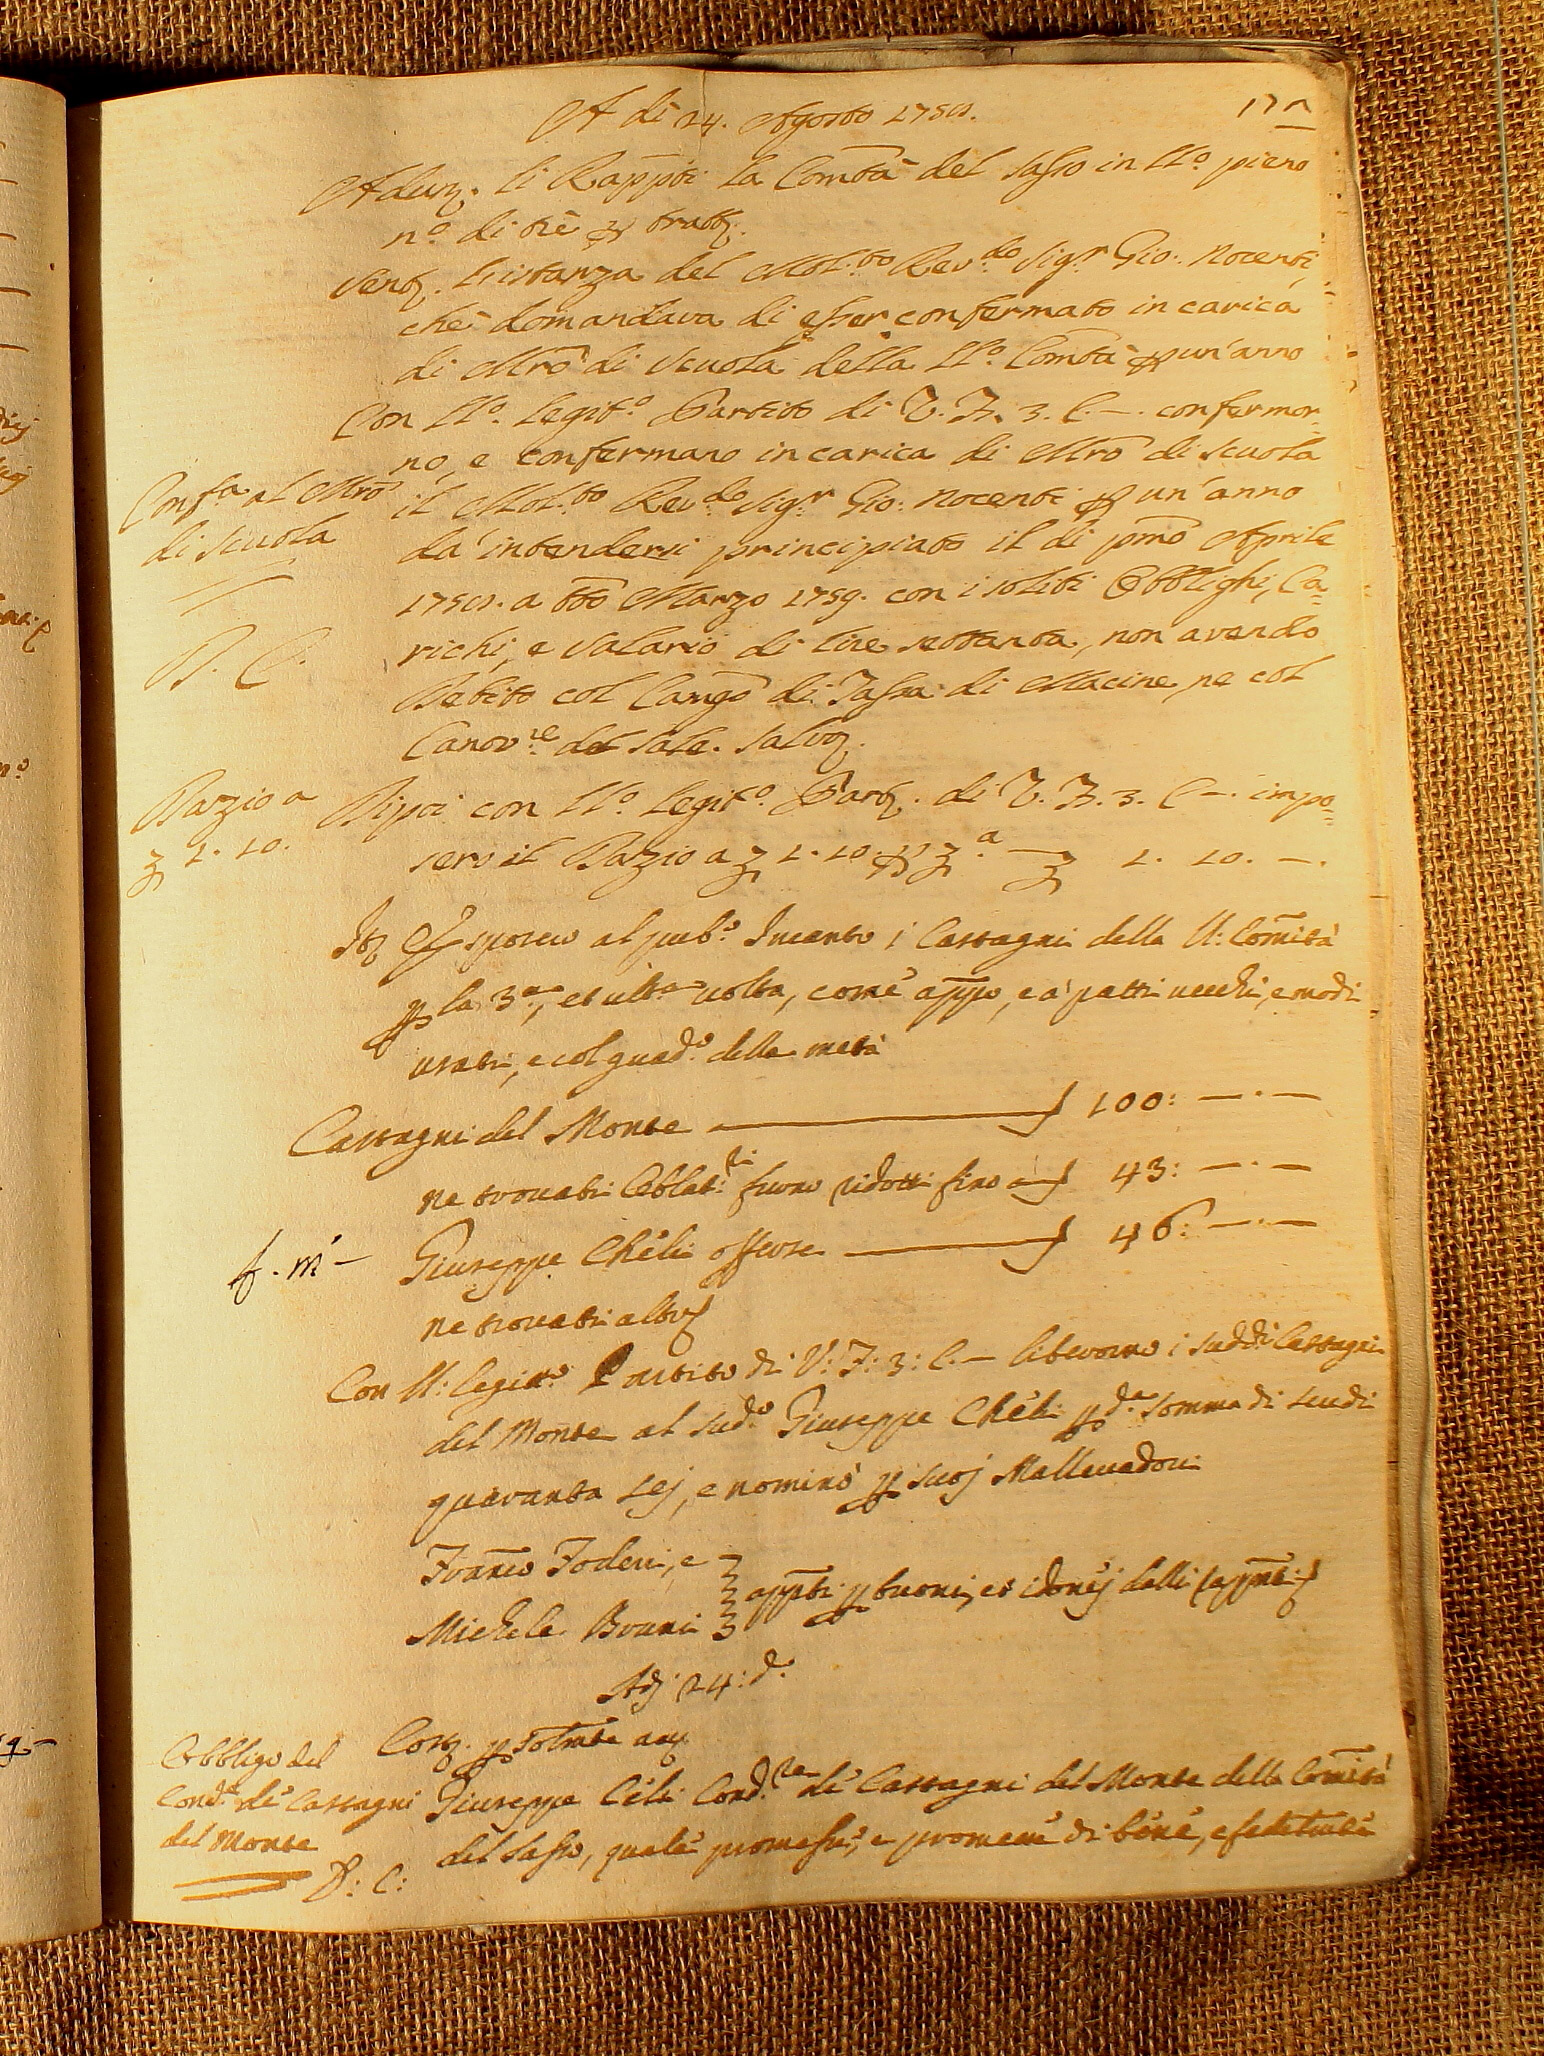 A dì 24. Agosto 1758.
Adun. li Rapp.ti la Com.tà del Sasso in ll.o pieno
n.o di trè p tratt.
Sent. l'istanza del Mol.to Rev.do Sig.r Gio: Nocenti
che domandava di esser confermato in carica
di Mro di Scuola della ll.o Com.tà p un'anno
Con ll.o legit.o Partito di V. F. 3. C. —. confermor-
no, e confermano in carica di Mro di Scuola
Conf.a al Mro
di Scuola
il Mol.to Rev.do Sig.r Gio: Nocenti p un'anno
da intendersi principiato il di pmo Aprile
1758. a tto Marzo 1759. con i soliti Obblighi, Ca=
D. C.
richi, e Salario di lire settanta, non avendo
Debito col Camgo di Tassa di Macine, ne col
Canov.re del Sale. Salvo.
Dazio a
1. 10.
Dipoi con ll.o legit.o Part. di V. F. 3. C —. impo=
sero il Dazio a 1. 10. p a — 1. 10. —.
It. Esposero al pub.o Incanto i Castagni della ll: Comità
p la 3.a, et ult.a volta, come app.o, e a' patti vecchi, e modi
usati, e col guad.o della metà
Castagni del Monte — 100: — . —
ne trovati Oblat.ri furno ridotti fino a 43: — . —
f. m —
Giuseppe Chèli offerse — 46: — . —
ne trovati altri
Con ll: legit.o Partito di V: F: 3: C. — liberorno i sudd.i Castagni
del Monte al sud.o Giuseppe Chèli p d.a somma di scudi
quaranta sej, e nominò p suoj Mallevadori
Franco Foderi, e
Michele Bruni
app.ti p buoni, et idonej dalli rapp.nti
Adj 24: d.
Obbligo del
Cond.e de' Castagni
del Monte
D: C:
Cost. p.
Giuseppe Cèli Cond.re de' Castagni del Monte della Comità
del Sasso, quale promesse, e promette di bene, e